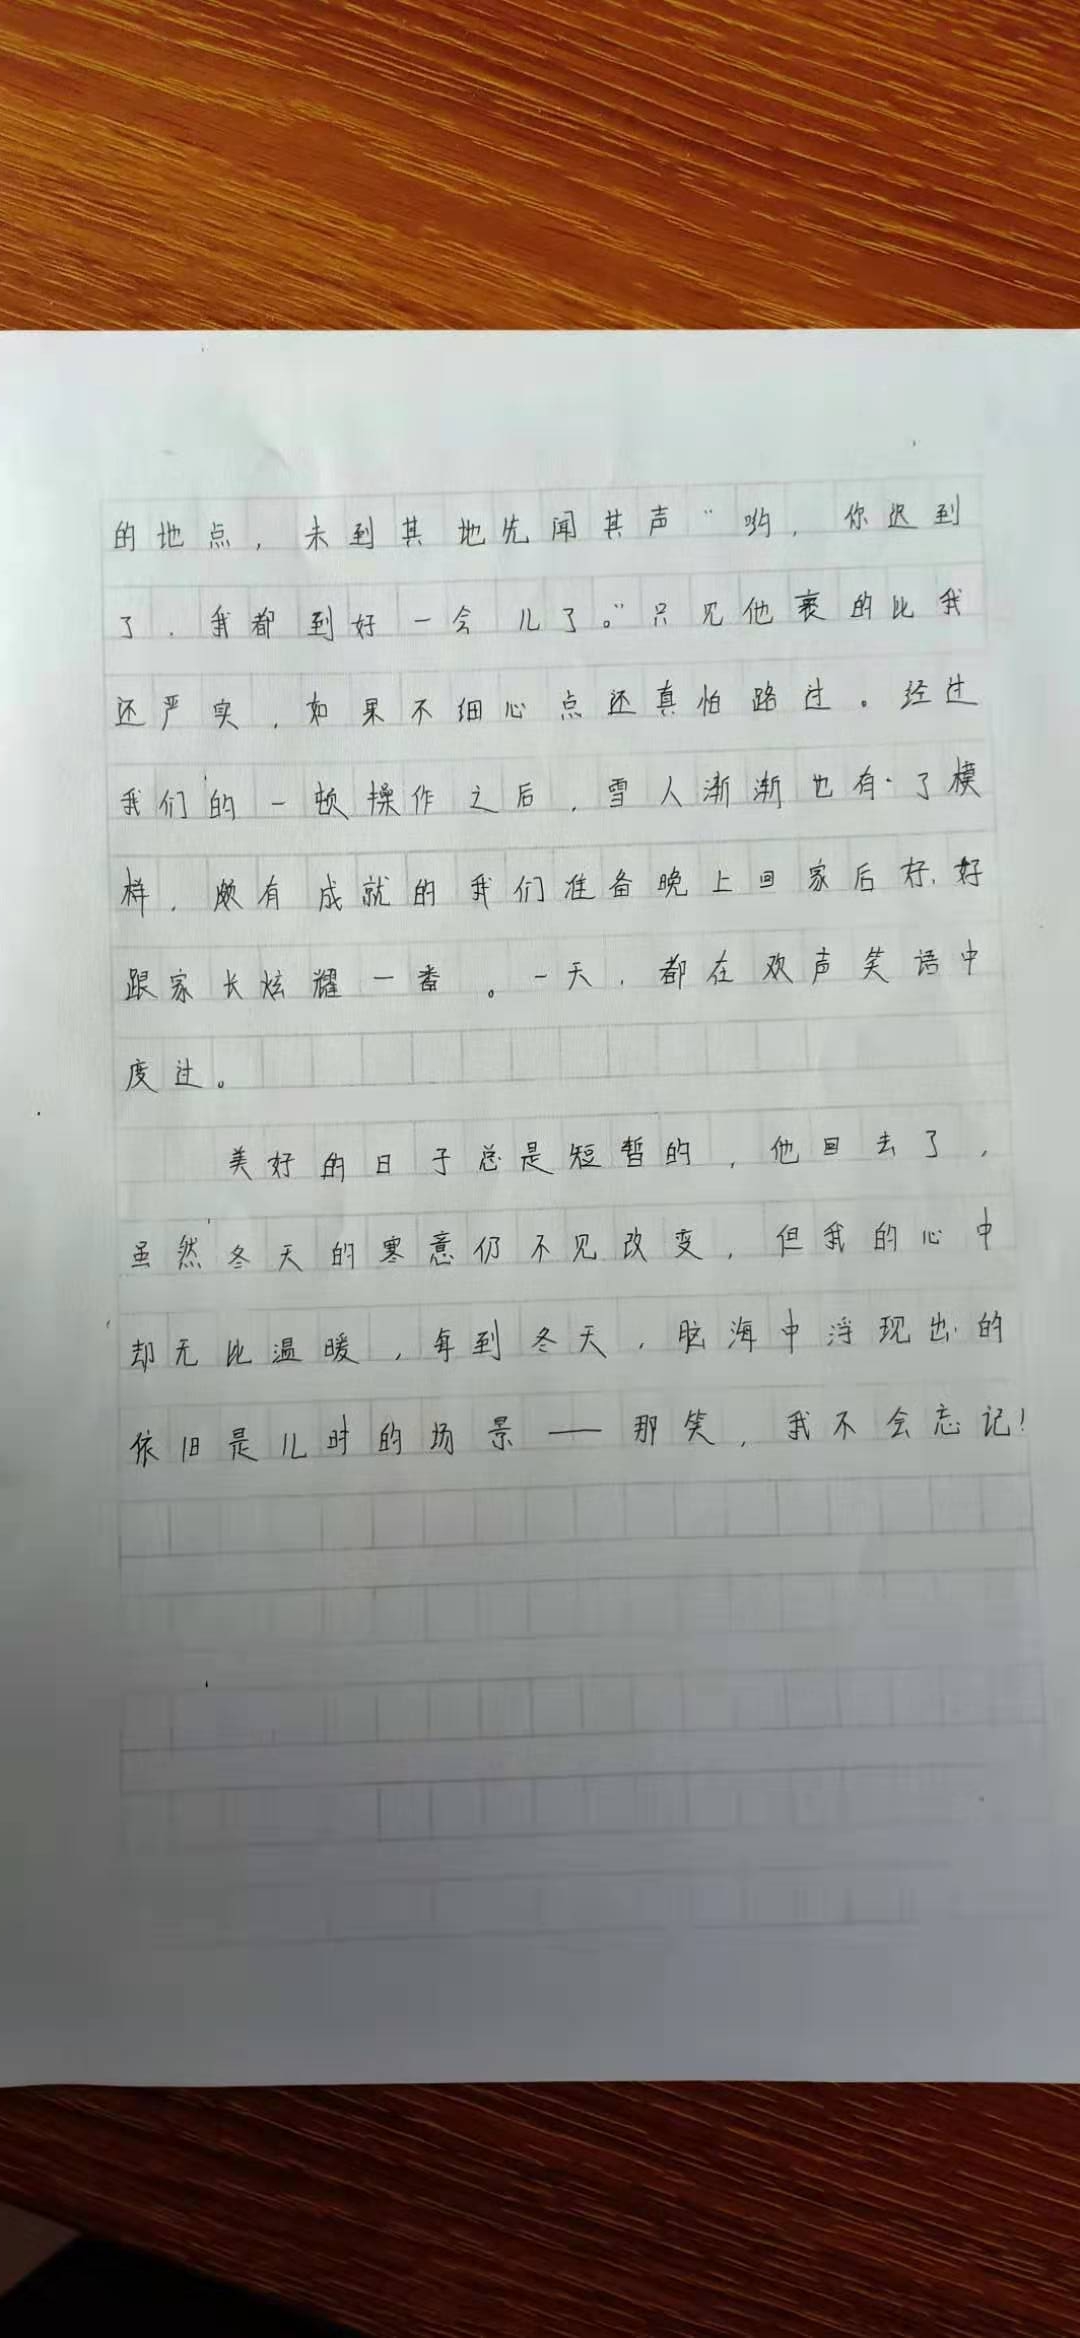 的地点，未到其地先闻其声“哟，你迟到
了，我都到好一会儿了。”只见他裹的比我
还严实，如果不细心点还真怕路过。经过
我们的一顿操作之后，雪人渐渐也有了模
样，颇有成就的我们准备晚上回家后好好
跟家长炫耀一番。一天，都在欢声笑语中
度过。
美好的日子总是短暂的，他回去了，
虽然冬天的寒意仍不见改变，但我的心中
却无比温暖，每到冬天，脑海中浮现出的
依旧是儿时的场景——那笑，我不会忘记！